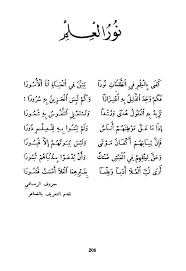 نُورُ الْعِلْمِ
كَفَى بِالْعِلْمِ فِي الظُّلُمَاتِ نُورَا يُبَيِّنُ فِي الْحَيَاةِ لَنَا الْأُمُورَا
فَكَمْ وَجَدَ الذَّلِيلُ بِهِ اعْتِزَازًا وَكَمْ لَبِسَ الْحَزِينُ بِهِ سُرُورَا
تَزِيدُ بِهِ الْعُقُولُ هُدًى وَرُشْدًا وَتَسْتَعْلِي النُّفُوسُ بِهِ شُعُورَا
إِذَا مَا عَقَّ مَوْطِنَهُمْ أُنَاسٌ وَلَمْ يَبْنُوا بِهِ لِلْعِلْمِ دُورَا
فَإِنَّ ثِيَابَهُمْ أَكْفَانُ مَوْتَى وَلَيْسَ بُيُوتُهُمْ إِلَّا قُبُورَا
وَحُقَّ لِمِثْلِهِمْ فِي الْعَيْشِ ضَنْكٌ وَأَنْ يَدْعُوا بِدُنْيَاهُمْ ثُبُورَا
أَرَى لُبَّ الْعُلَا أَدَبًا وَعِلْمًا بِغَيْرِهِمَا الْعُلَا أَمْسَتْ قُشُورَا
معروف الرصافي